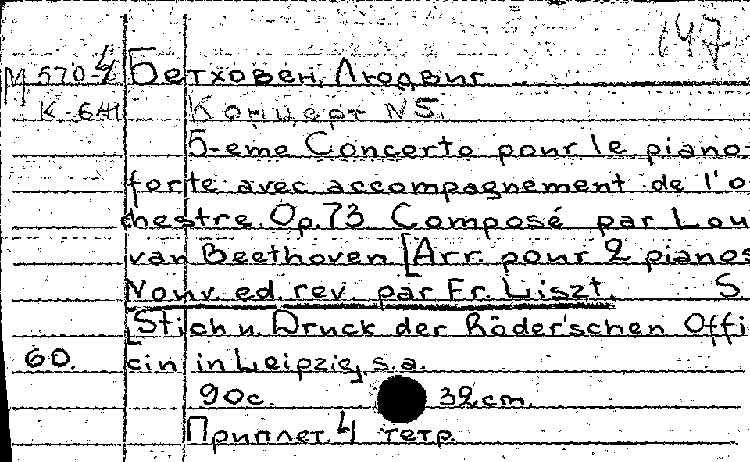 147
М 570-4 Бетховен, Людвиг
К-641 Концерт N5.
5-eme Concerto pour le piano-
forte avec accompagnement de l'o
chestre. Op.73 Composé par Lou
van Beethoven [Arr. pour 2 pianos
Nouv. ed. rev. par Fr. Liszt. S.
[Stich u. Druck der Röder'schen Offi
60. cin in Leipzig, s.a.
90с. 32 cm.
Приплет. 4 тетр.